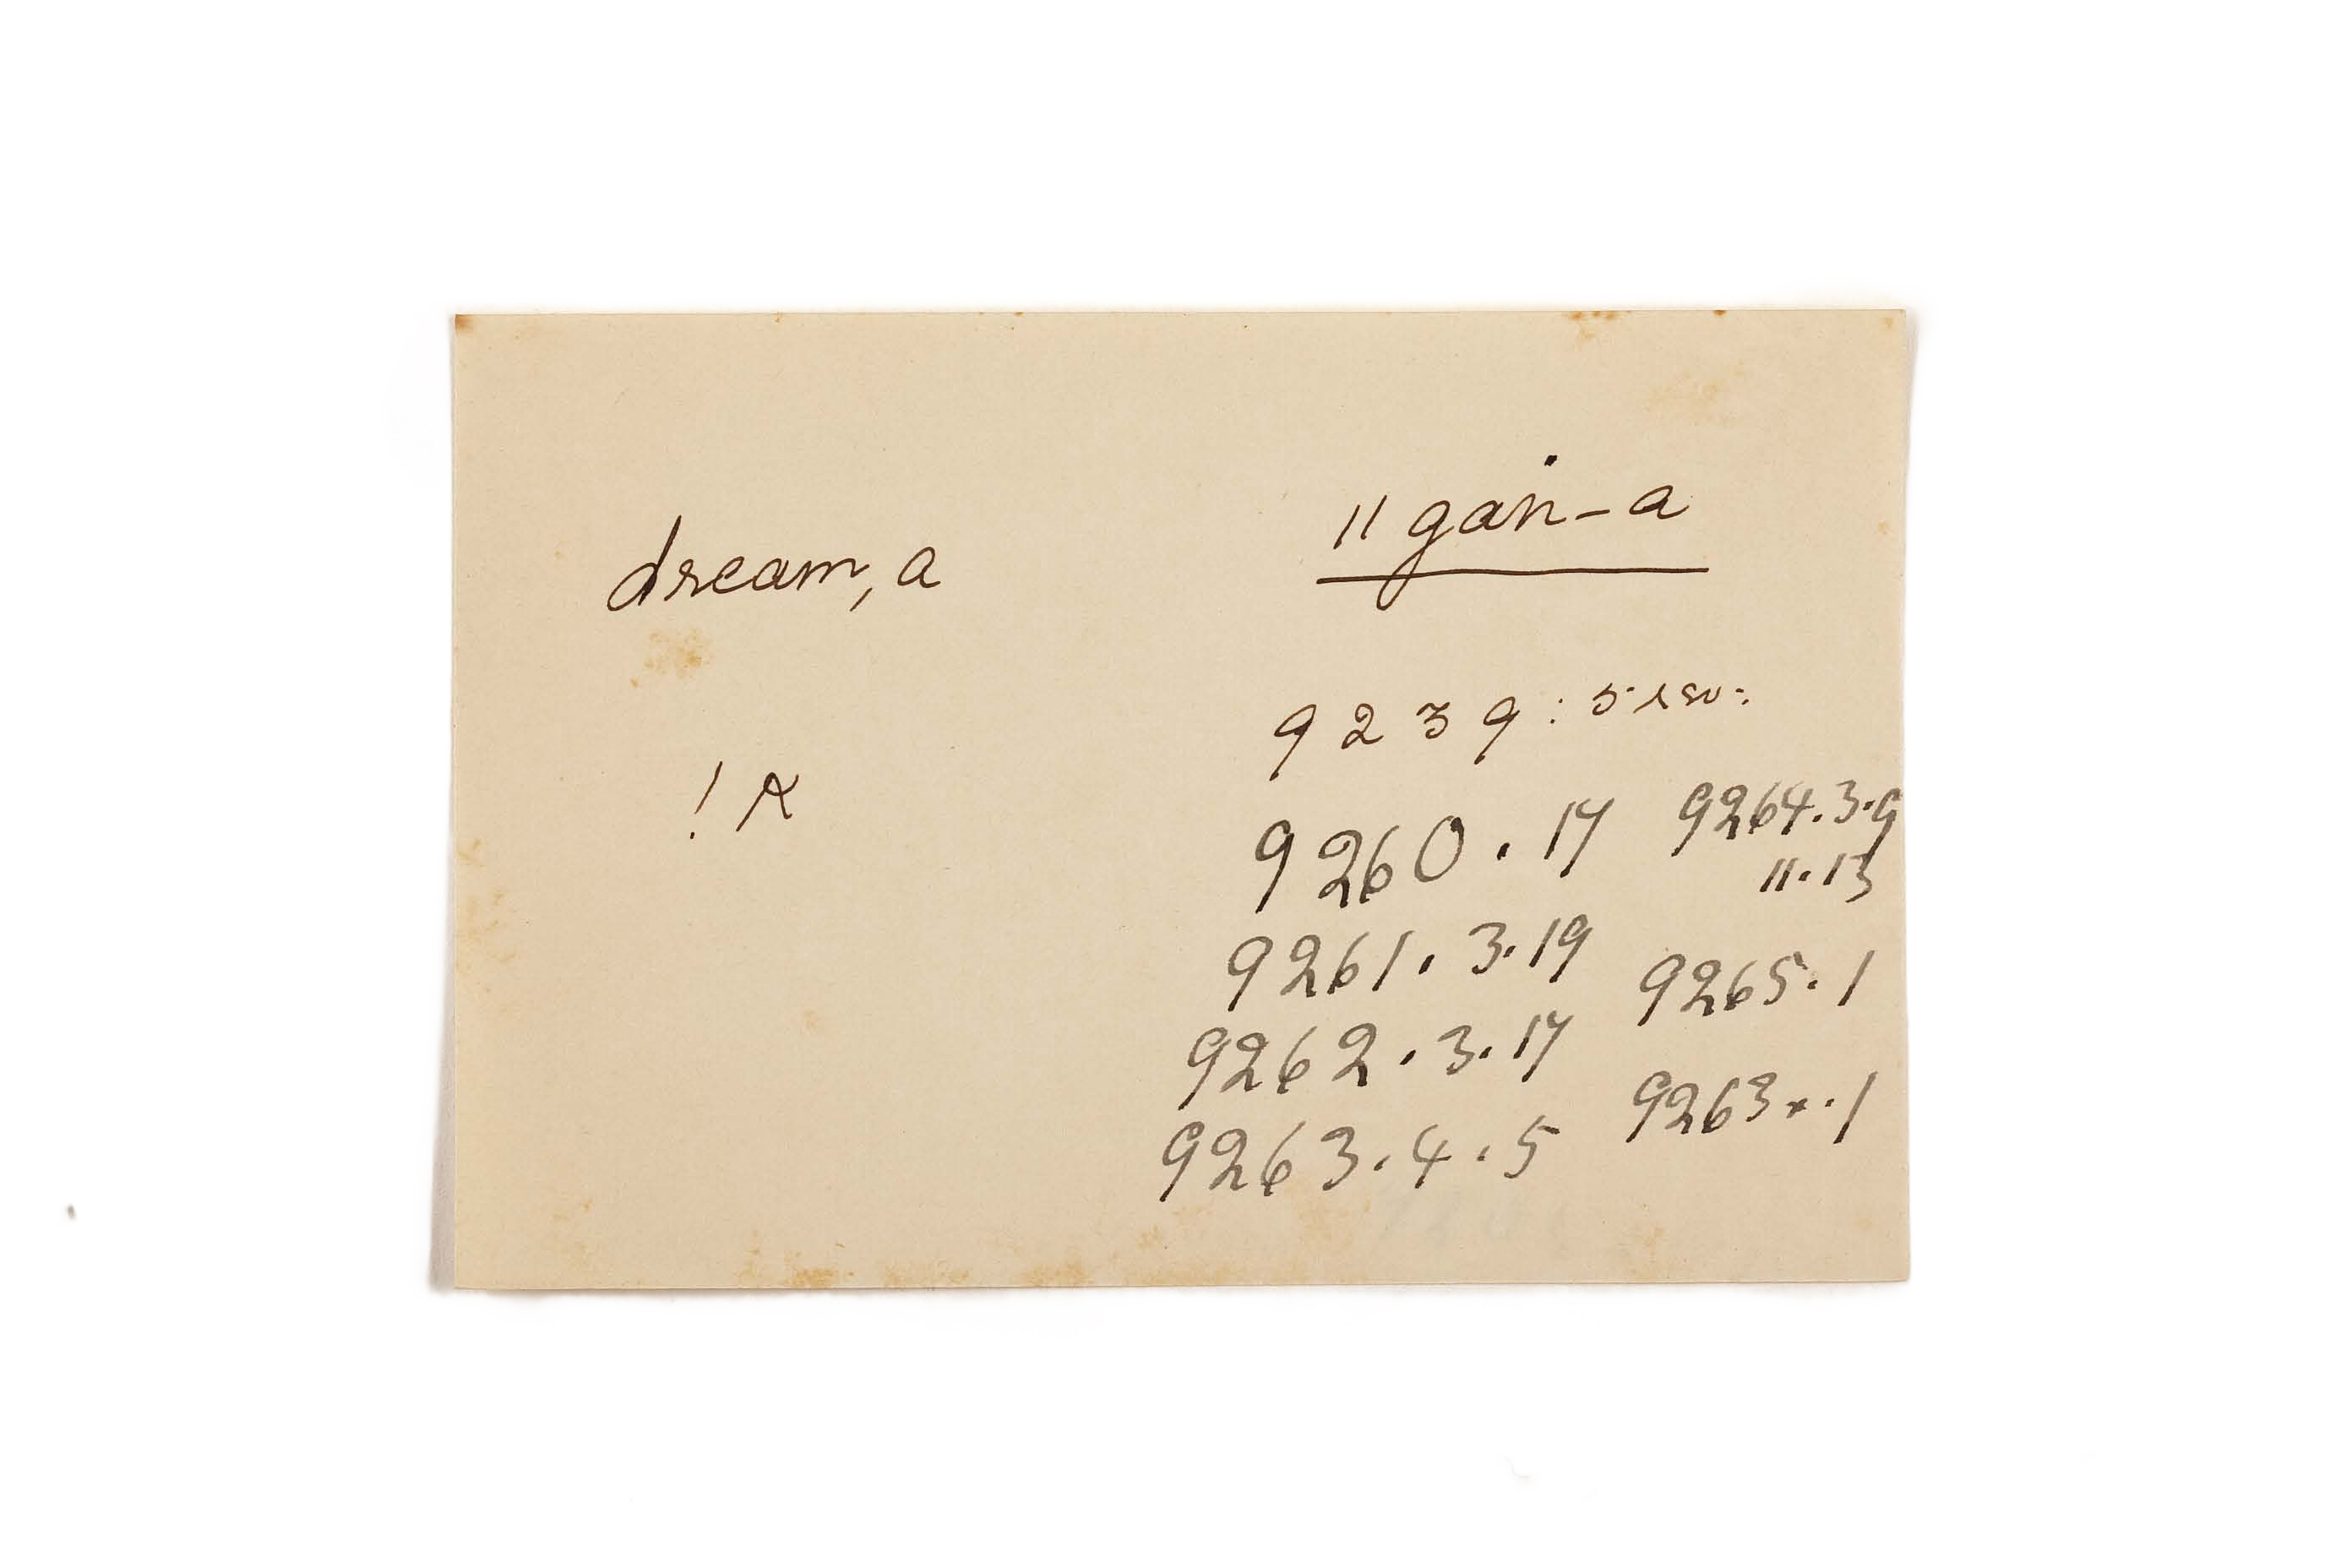 dream, a
ǁ gaṅ-a
! k
9239: 5. rev:
9260. 17
9261. 3. 19
9262. 3. 17
9263. 4. 5
9264. 3. 9
11. 13
9265. 1
9263 x. 1